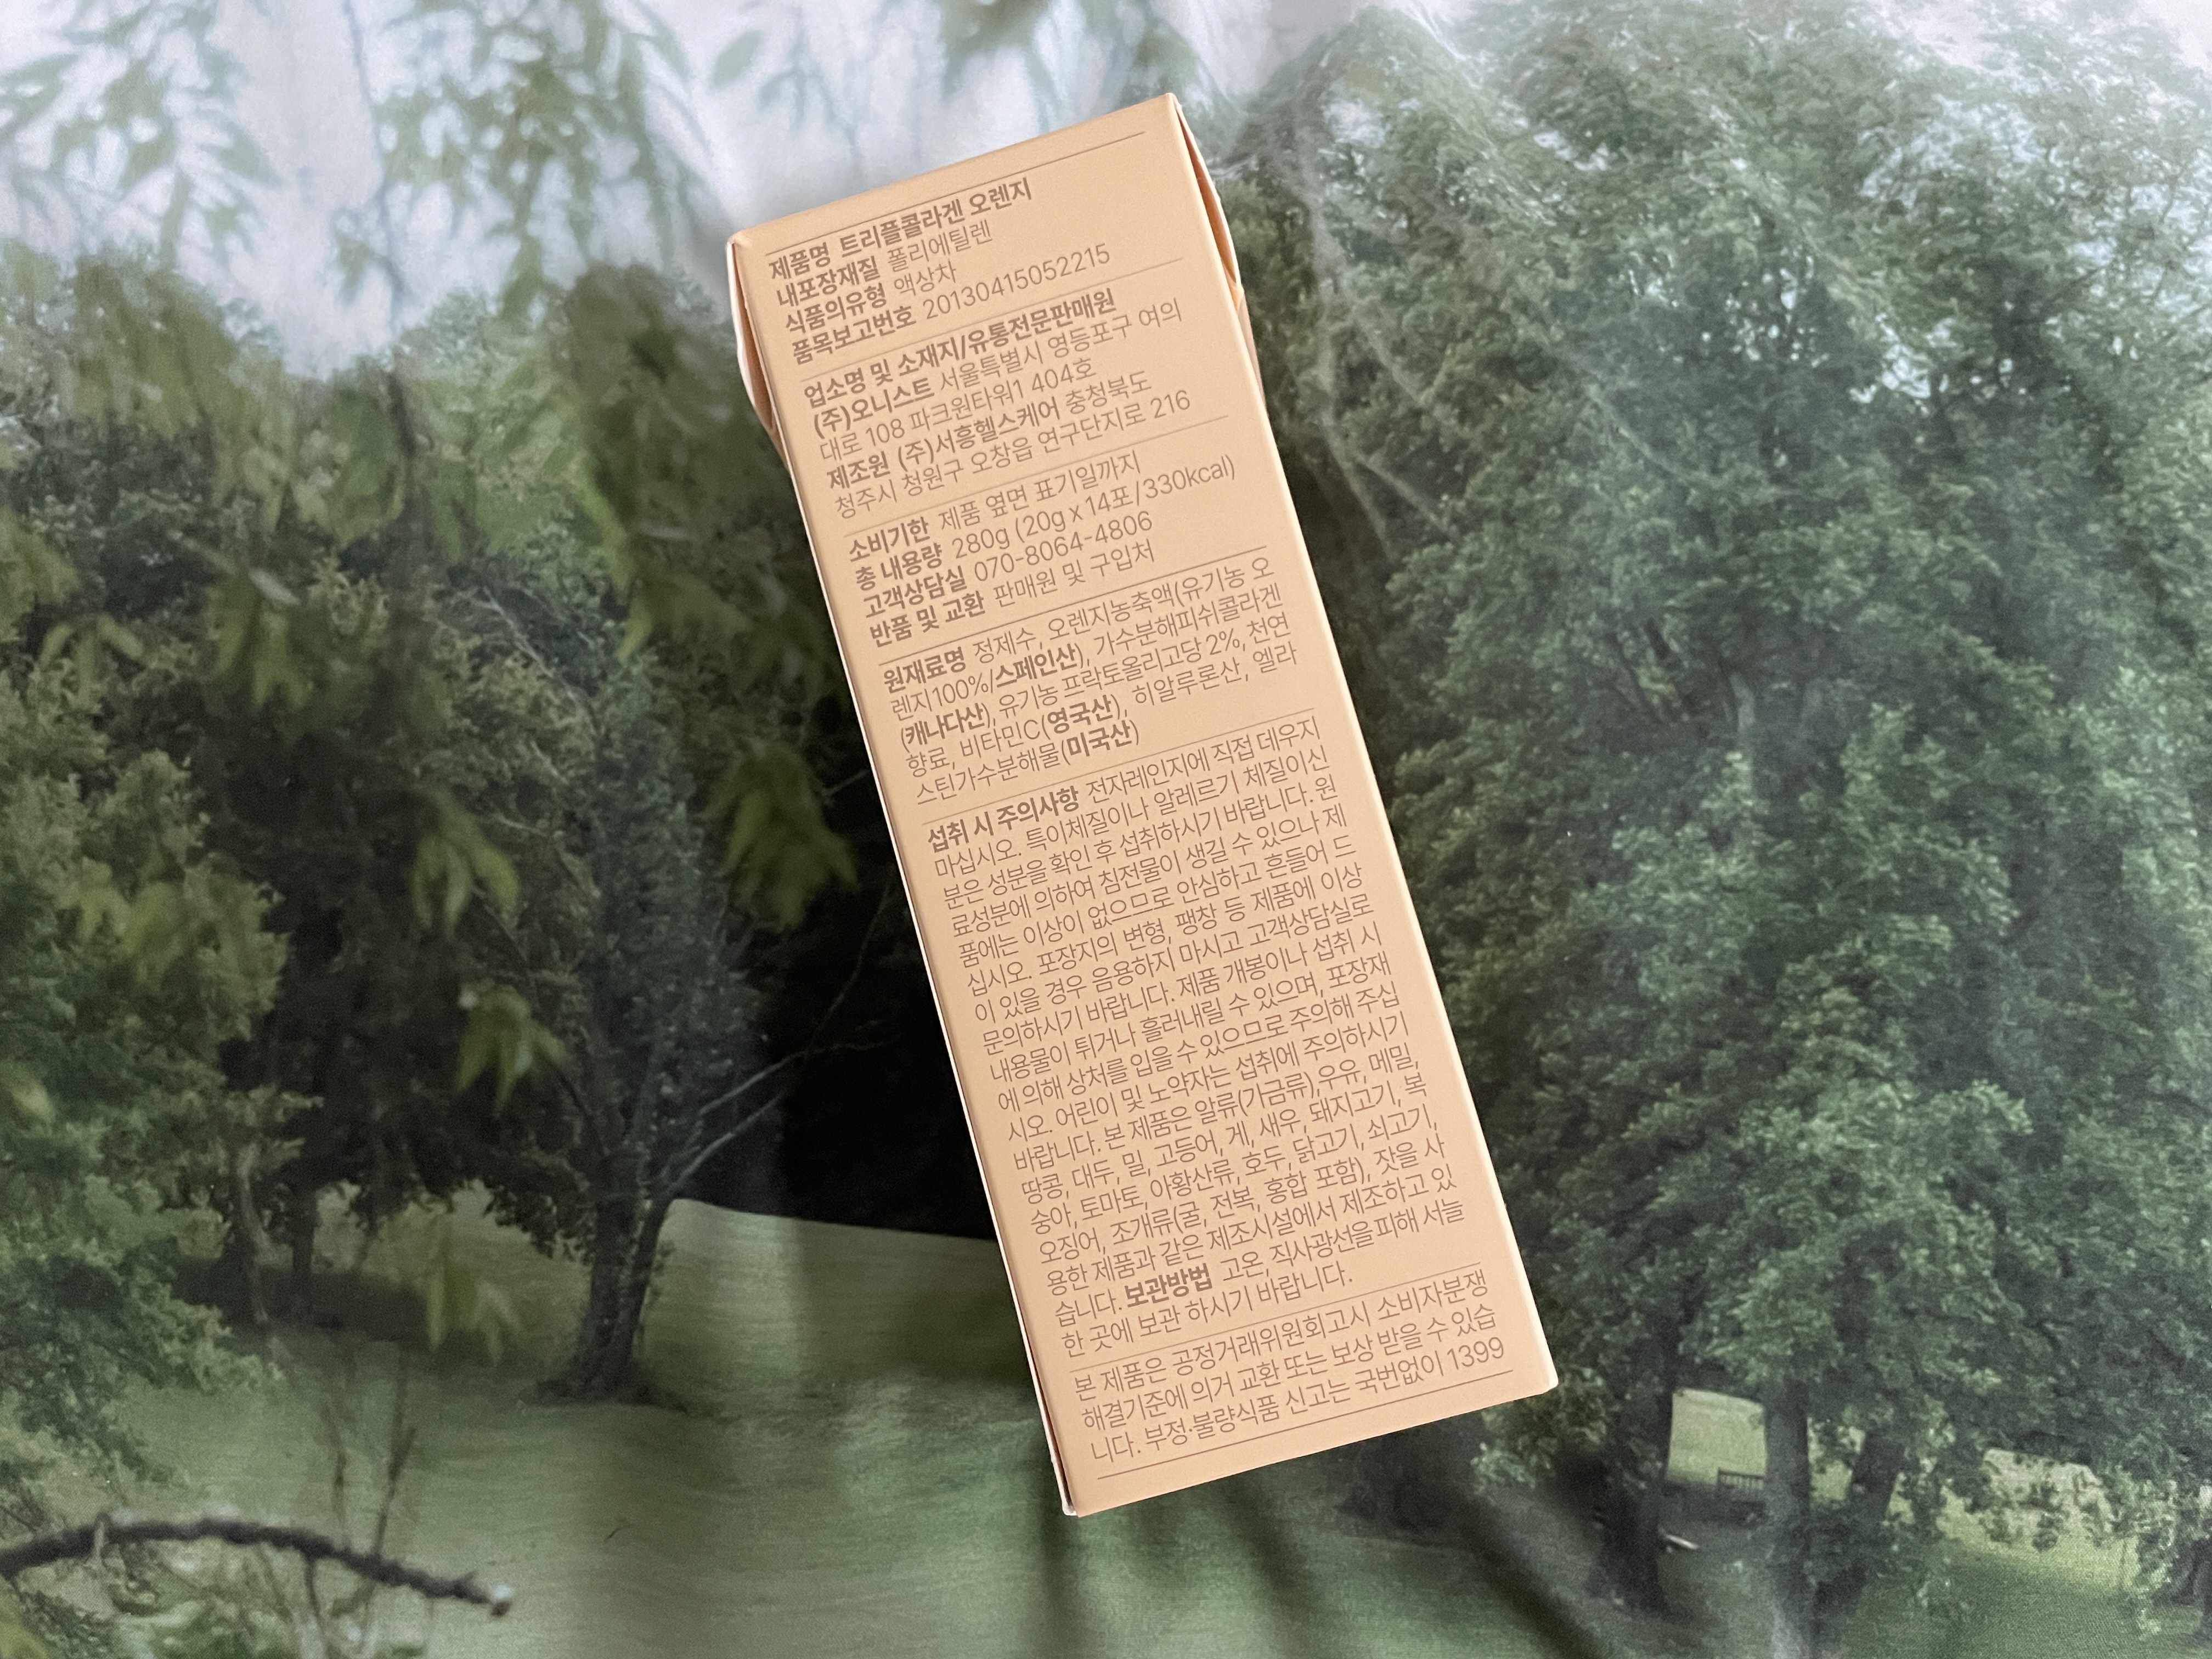 제품명 트리플콜라겐 오렌지
내포장재질 폴리에틸렌
식품의유형 액상차
품목보고번호 20130415052215
업소명 및 소재지/유통전문판매원
(주)오니스트 서울특별시 영등포구 여의
대로 108 파크원타워1 404호
제조원 (주)서흥헬스케어 충청북도
청주시 청원구 오창읍 연구단지로 216
소비기한 제품 옆면 표기일까지
총 내용량 280g (20g x 14포/330kcal)
고객상담실 070-8064-4806
반품 및 교환 판매원 및 구입처
원재료명 정제수, 오렌지농축액(유기농 오
렌지100%/스페인산), 가수분해피쉬콜라겐
(캐나다산), 유기농 프락토올리고당 2%, 천연
향료, 비타민C(영국산), 히알루론산, 엘라
스틴가수분해물(미국산)
섭취 시 주의사항 전자레인지에 직접 데우지
마십시오. 특이체질이나 알레르기 체질이신
분은 성분을 확인 후 섭취하시기 바랍니다. 원
료성분에 의하여 침전물이 생길 수 있으나 제
품에는 이상이 없으므로 안심하고 흔들어 드
십시오. 포장지의 변형, 팽창 등 제품에 이상
이 있을 경우 음용하지 마시고 고객상담실로
문의하시기 바랍니다. 제품 개봉이나 섭취 시
내용물이 튀거나 흘러내릴 수 있으며, 포장재
에 의해 상처를 입을 수 있으므로 주의해 주십
시오. 어린이 및 노약자는 섭취에 주의하시기
바랍니다. 본 제품은 알류(가금류),우유, 메밀,
땅콩, 대두, 밀, 고등어, 게, 새우, 돼지고기, 복
숭아, 토마토, 아황산류, 호두, 닭고기, 쇠고기,
오징어, 조개류(굴, 전복, 홍합 포함), 잣을 사
용한 제품과 같은 제조시설에서 제조하고 있
습니다. 보관방법 고온, 직사광선을 피해 서늘
한 곳에 보관 하시기 바랍니다.
본 제품은 공정거래위원회고시 소비자분쟁
해결기준에 의거 교환 또는 보상 받을 수 있습
니다. 부정·불량식품 신고는 국번없이 1399